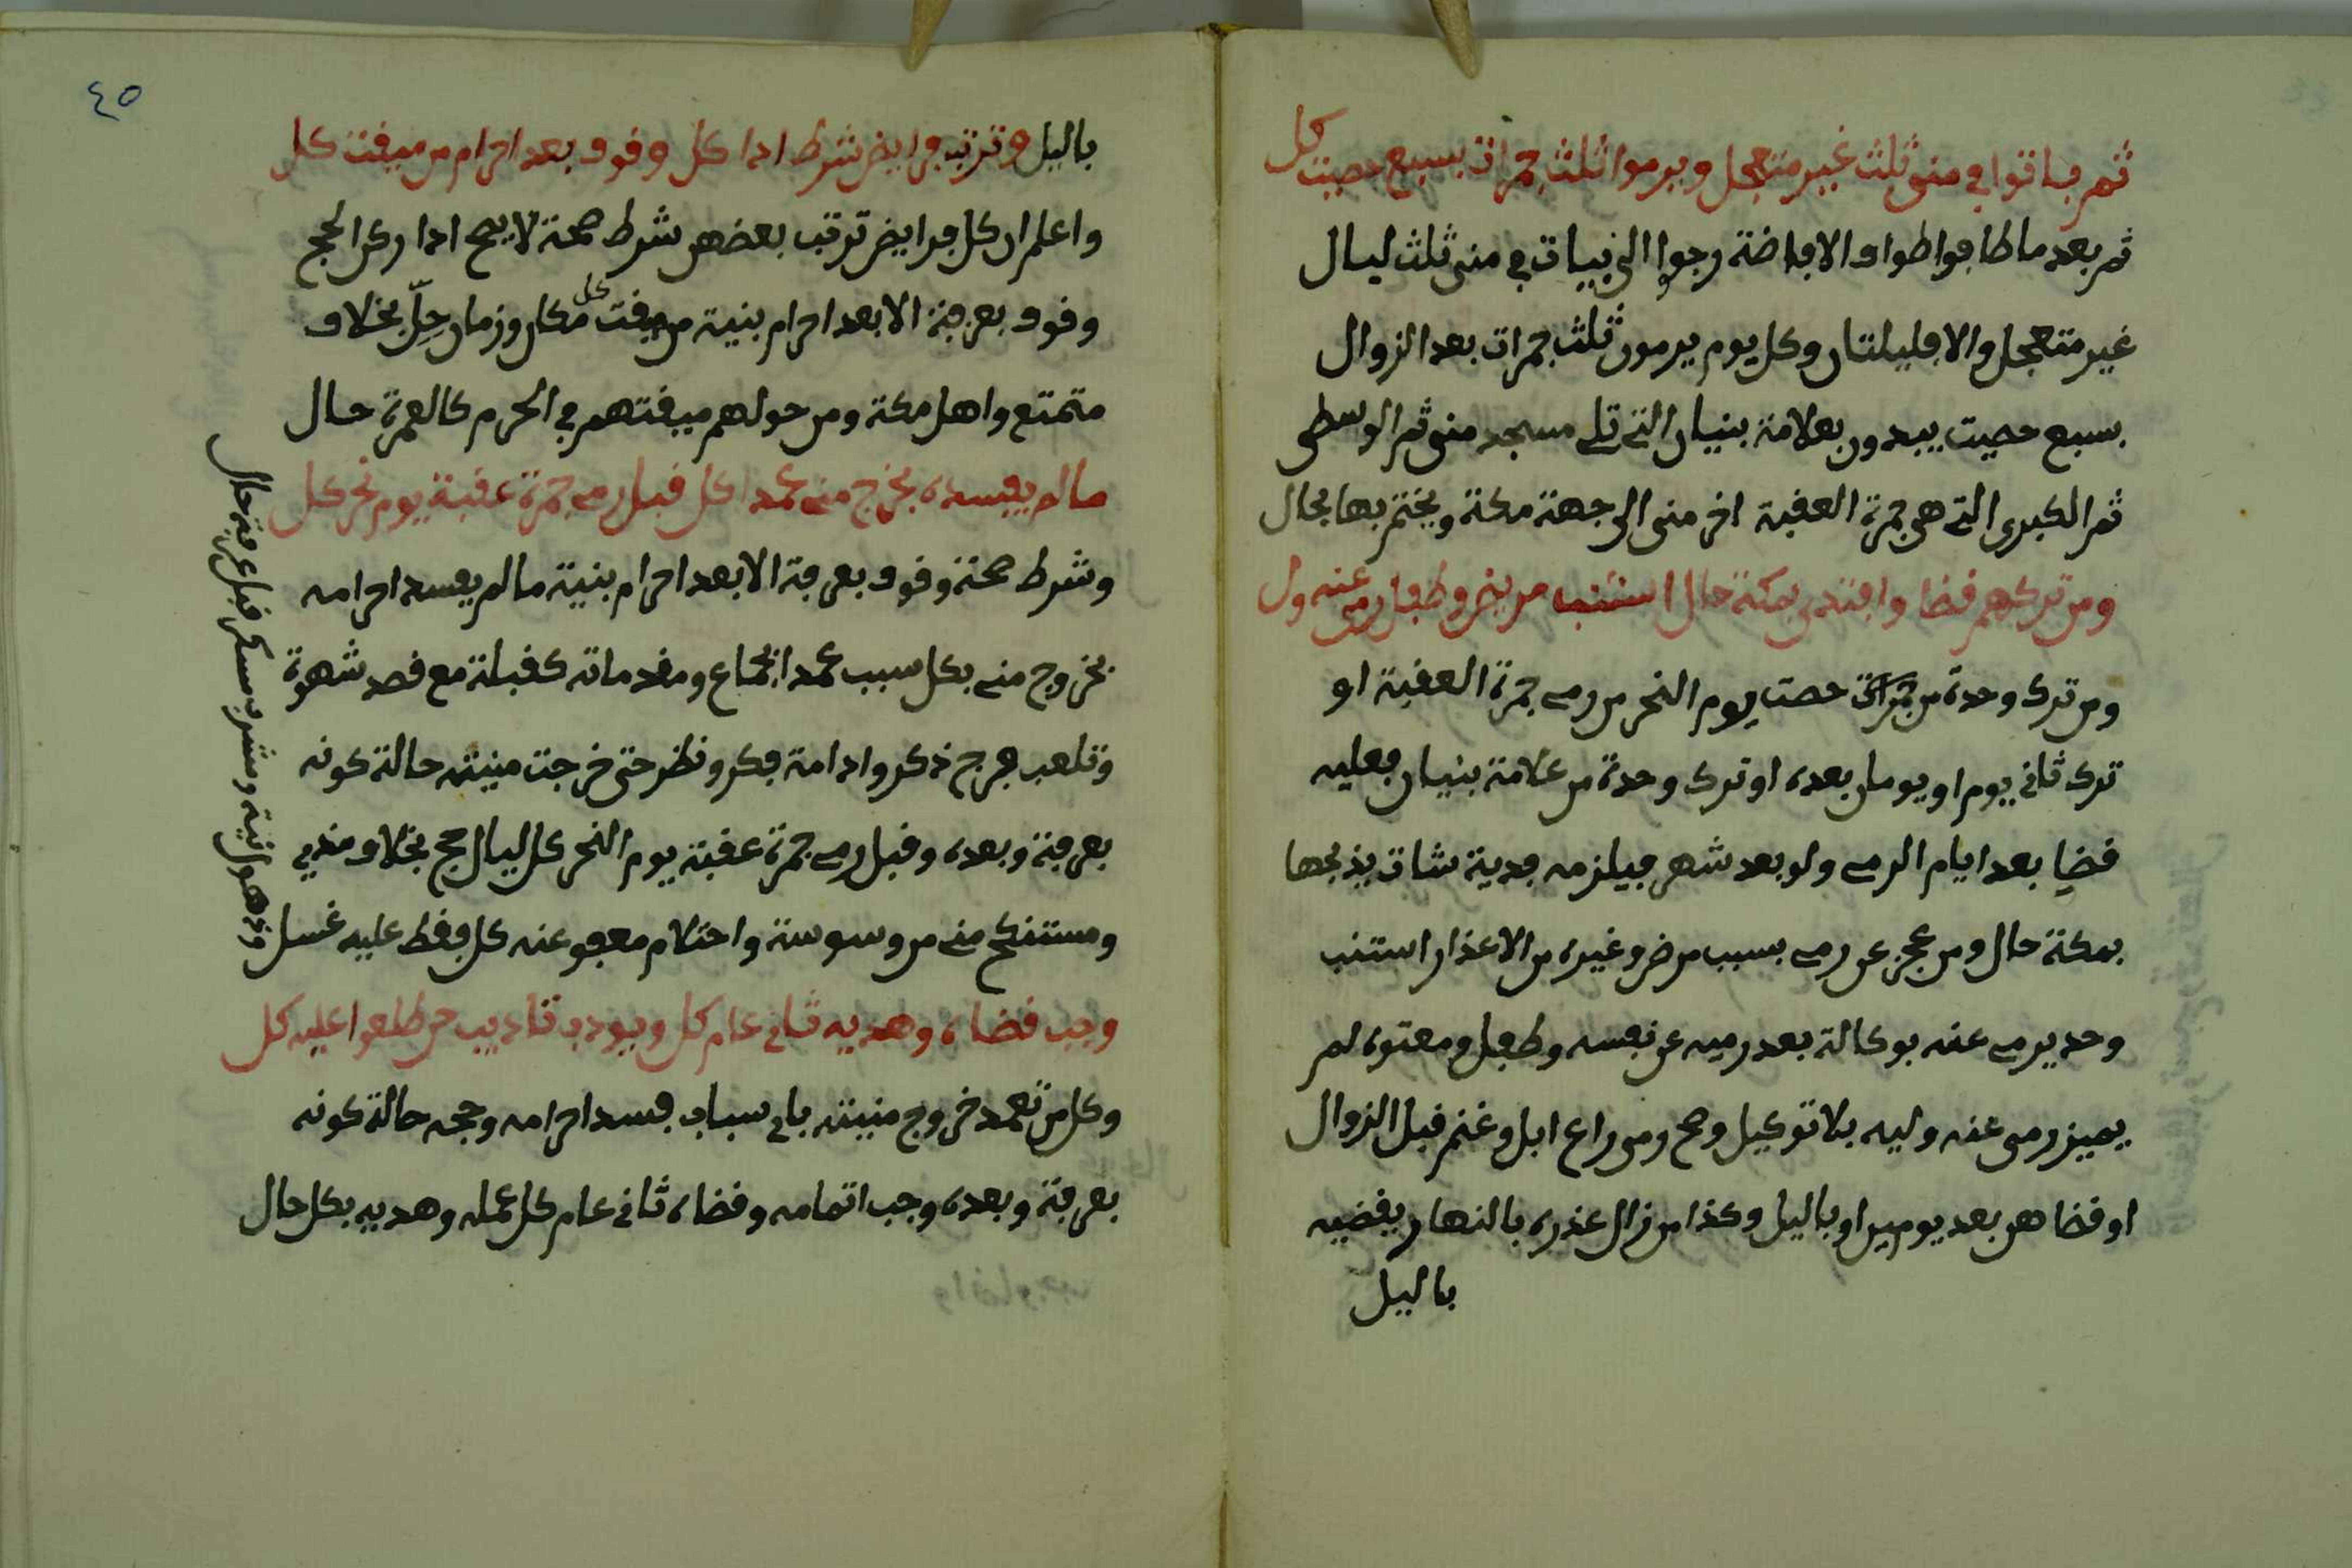 ثم باتوا في منى ثلث غير متعجل ويرموا ثلث جمرات بسبع حصيت كل
ثم بعد ما طافوا طواف الافاضة رجوا الى بيات في منى ثلث ليال
غير متعجل والا فليلتان وكل يوم يرمون ثلث جمرات بعد الزوال
بسبع حصيت يبدون بعلامة بنيان التي تلي مسجد منى ثم الوسطى
ثم الكبرى التي هي جمرة العقبة اخر منى الى جهة مكة ويختم بها بحال
ومن تركهم قضا وافتدى بمكة حال استنب مريض وطفل رمى عنه ول
ومن ترك وحدة من جمرات حصت يوم النحر من رمي جمرة العقبة او
ترك ثاني يوم او يومان بعده او ترك وحدة من علامة بنيان فعليه
قضا بعد ايام الرمي ولو بعد شهر فيلزمه فدية شات يذبحها
بمكة حال ومن عجز عن رمي بسبب مرض وغيره من الاعذار استنب
وحد يرمي عنه بوكالة بعد رميه عن نفسه وطفل ومعتوه لم
يميز رمى عنه وليه بلا توكيل وصح رمى راع ابل وغنم قبل الزوال
او قضا هن بعد يومين او باليل وكذا من زال عذره بالنهار يقضيه
باليل
٤٥
باليل وترتب فرايض شرط ادا كل وقوف بعد احرام من ميقت كل
واعلم ان كل فرايض ترتب بعضهن شرط صحة لا يصح ادا ركن الحج
وقوف بعرفة الا بعد احرام بنية من ميقت كل مكان وزمان حلّ بخلاف
متمتع واهل مكة ومن حولهم ميقتهم في الحرم كالعمرة حال
ما لم يفسده بخرج مني عمدا كل قبل رمي جمرة عقبة يوم نحر كل
وشرط صحة وقوف بعرفة الا بعد احرام بنية ما لم يفسد احرامه
بخروج مني بكل سبب عمدا بجماع ومقدماته كقبلة مع قصد شهوة
وتلعب فرج ذكر وادامة فكر ونظر حتى خرجت منيته حالة كونه
بعرفة وبعده وقبل رمي جمرة عقبة يوم النحر كل ليال حج بخلاف مذي
ومستنكح مني من وسوسة واحتلام معفو عنه كل فقط عليه غسل
وجب قضاه وهديه ثاني عام كل ويودب تاديب من طلعوا عليه كل
وكل من تعمد خروج منيته باي سباب فسد احرامه وحجه حالة كونه
بعرفة وبعده وجب اتمامه وقضاه ثاني عام كل عمله وهديه بكل حال
وذهول نية وشرب مسكر قبل عرفة حال